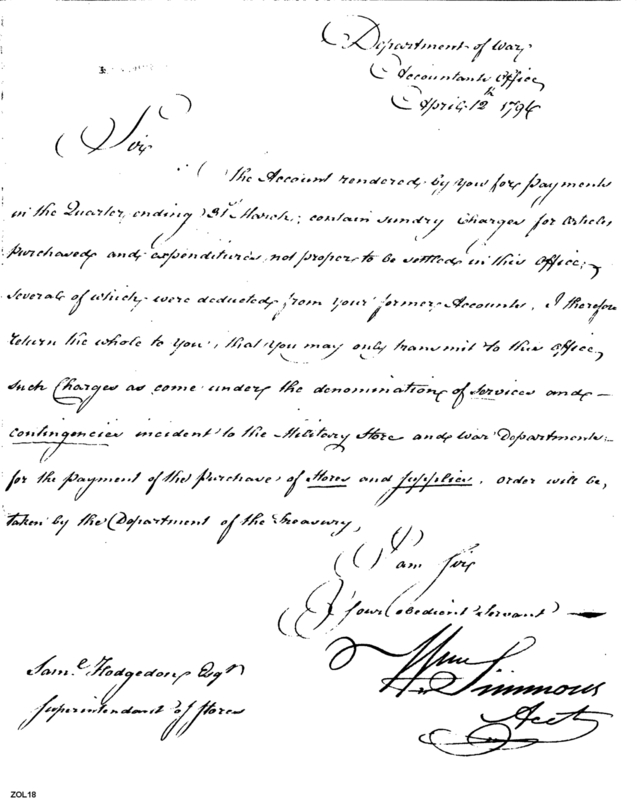 Department of War
Accountants Office
April 12th 179
Sir
the Account rendered by you for payments
in the Quarter ending 31st March, contain sundry charges for articles
purchased and expenditures, not proper to be settled in this Office,
several of which were deducted from your former Accounts. I therefore
return the whole to you, that you may only transmit to this Office,
such Charges as come under the denomination of Services and
contingencies incident to the Military Store and War Departments
for the payment of the purchases of Stores and Supplies. Order will be,
taken by the Department of the Treasury,
I am Sir
Your obedient Servant
Wm Simmons
Acct
Saml Hodgedon Esqr
Superintendant of Stores
ZOL18